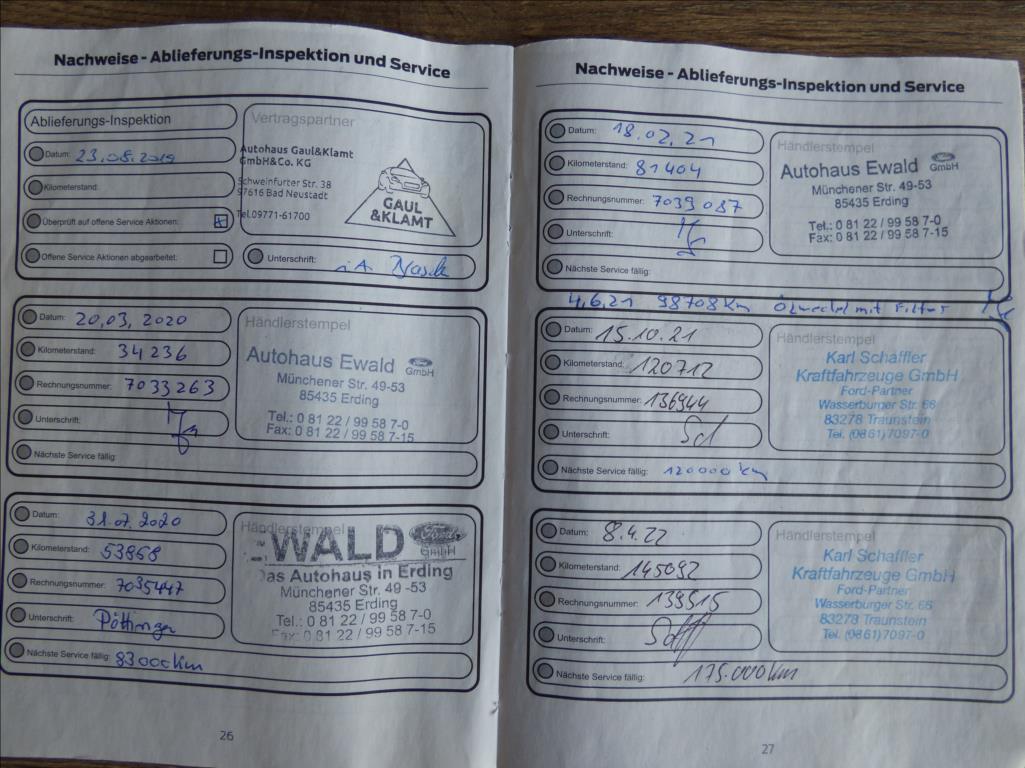 Nachweise - Ablieferungs-Inspektion und Service
Ablieferungs-Inspektion
Datum: 23.08.2019
Kilometerstand:
Überprüft auf offene Service Aktionen:
Offene Service Aktionen abgearbeitet:
Vertragspartner
Autohaus Gaul&Klamt
GmbH&Co. KG
Schweinfurter Str. 38
97616 Bad Neustadt
Tel.09771-61700
GAUL
&KLAMT
Unterschrift: i.A.
Datum: 20.03.2020
Kilometerstand: 34236
Rechnungsnummer: 7033263
Unterschrift:
Nächste Service fällig:
Händlerstempel
Autohaus Ewald GmbH
Münchener Str. 49-53
85435 Erding
Tel.: 0 81 22 / 99 58 7-0
Fax: 0 81 22 / 99 58 7-15
Datum: 31.07.2020
Kilometerstand: 53868
Rechnungsnummer: 7035447
Unterschrift: Pöttinger
Nächste Service fällig: 83000km
Händlerstempel
EWALD Ford GmbH
Das Autohaus in Erding
Münchener Str. 49 -53
85435 Erding
Tel.: 0 81 22 / 99 58 7-0
Fax: 0 81 22 / 99 58 7-15
26
Nachweise - Ablieferungs-Inspektion und Service
Datum: 18.02.21
Kilometerstand: 81404
Rechnungsnummer: 7039087
Unterschrift:
Nächste Service fällig:
Händlerstempel
Autohaus Ewald GmbH
Münchener Str. 49-53
85435 Erding
Tel.: 0 81 22 / 99 58 7-0
Fax: 0 81 22 / 99 58 7-15
4.6.21 98708km Ölwechsel mit Filter
Datum: 15.10.21
Kilometerstand: 120712
Rechnungsnummer: 136944
Unterschrift:
Nächste Service fällig: 120000 km
Händlerstempel
Karl Schaffler
Kraftfahrzeuge GmbH
Ford-Partner
Wasserburger Str. 66
83278 Traunstein
Tel. (0861)7097-0
Datum: 8.4.22
Kilometerstand: 145092
Rechnungsnummer: 139515
Unterschrift:
Nächste Service fällig: 175.000km
Händlerstempel
Karl Schaffler
Kraftfahrzeuge GmbH
Ford-Partner
Wasserburger Str. 66
83278 Traunstein
Tel. (0861)7097-0
27